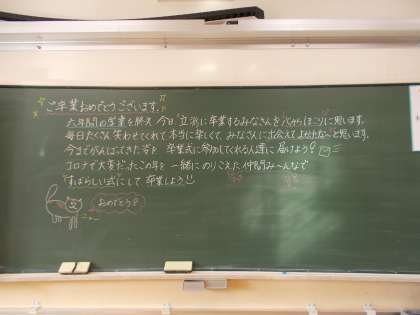 ご卒業おめでとうございます。
六年間の学業を終え 今日 立派に卒業するみなさんを 心からほこりに思います。
毎日たくさん 笑わせてくれて 本当に楽しくて、みなさんに出会えてよかったな～と思います。
今までがんばってきた姿を 卒業式に参加してくれる人達に 届けよう!
コロナで大変だったこの年を 一緒にのりこえた仲間み～んなで
すばらしい式にして 卒業しよう
おめでとう